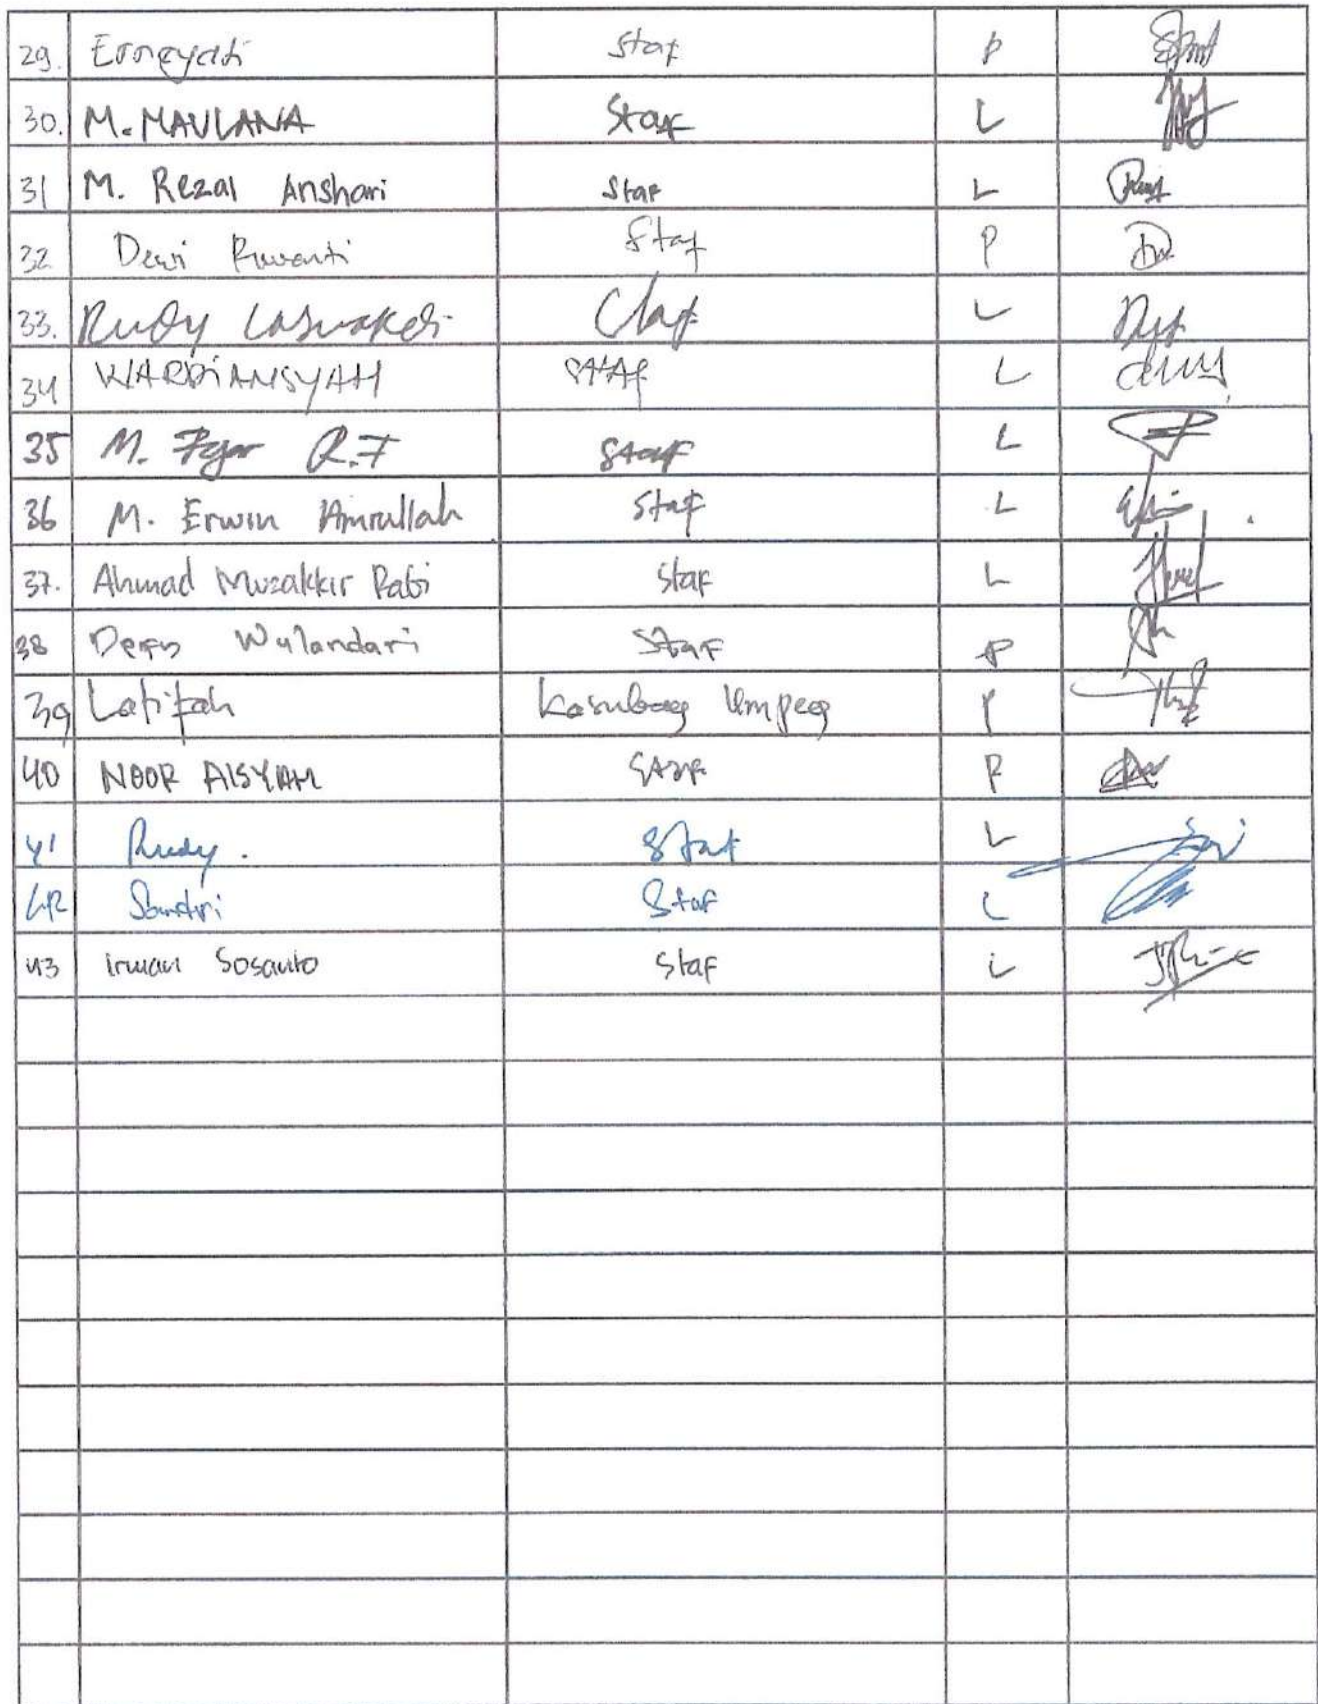 29. Erneyati Staf P
30. M. MAULANA Staf L
31 M. Rezal Anshari Staf L
32 Dewi Staf P
33. Rudy Staf L
34 WARDIANSYAH STAF L
35 M. Fajar R.F Staf L
36 M. Erwin Amrullah Staf L
37. Ahmad Muzakkir Rabi Staf L
38 Wulandari Staf P
39 Latifah Kasubag Umpeg P
40 NOOR AISYAH Staf P
41 Rudy. Staf L
42 Staf L
43 irwan Sosanto Staf L